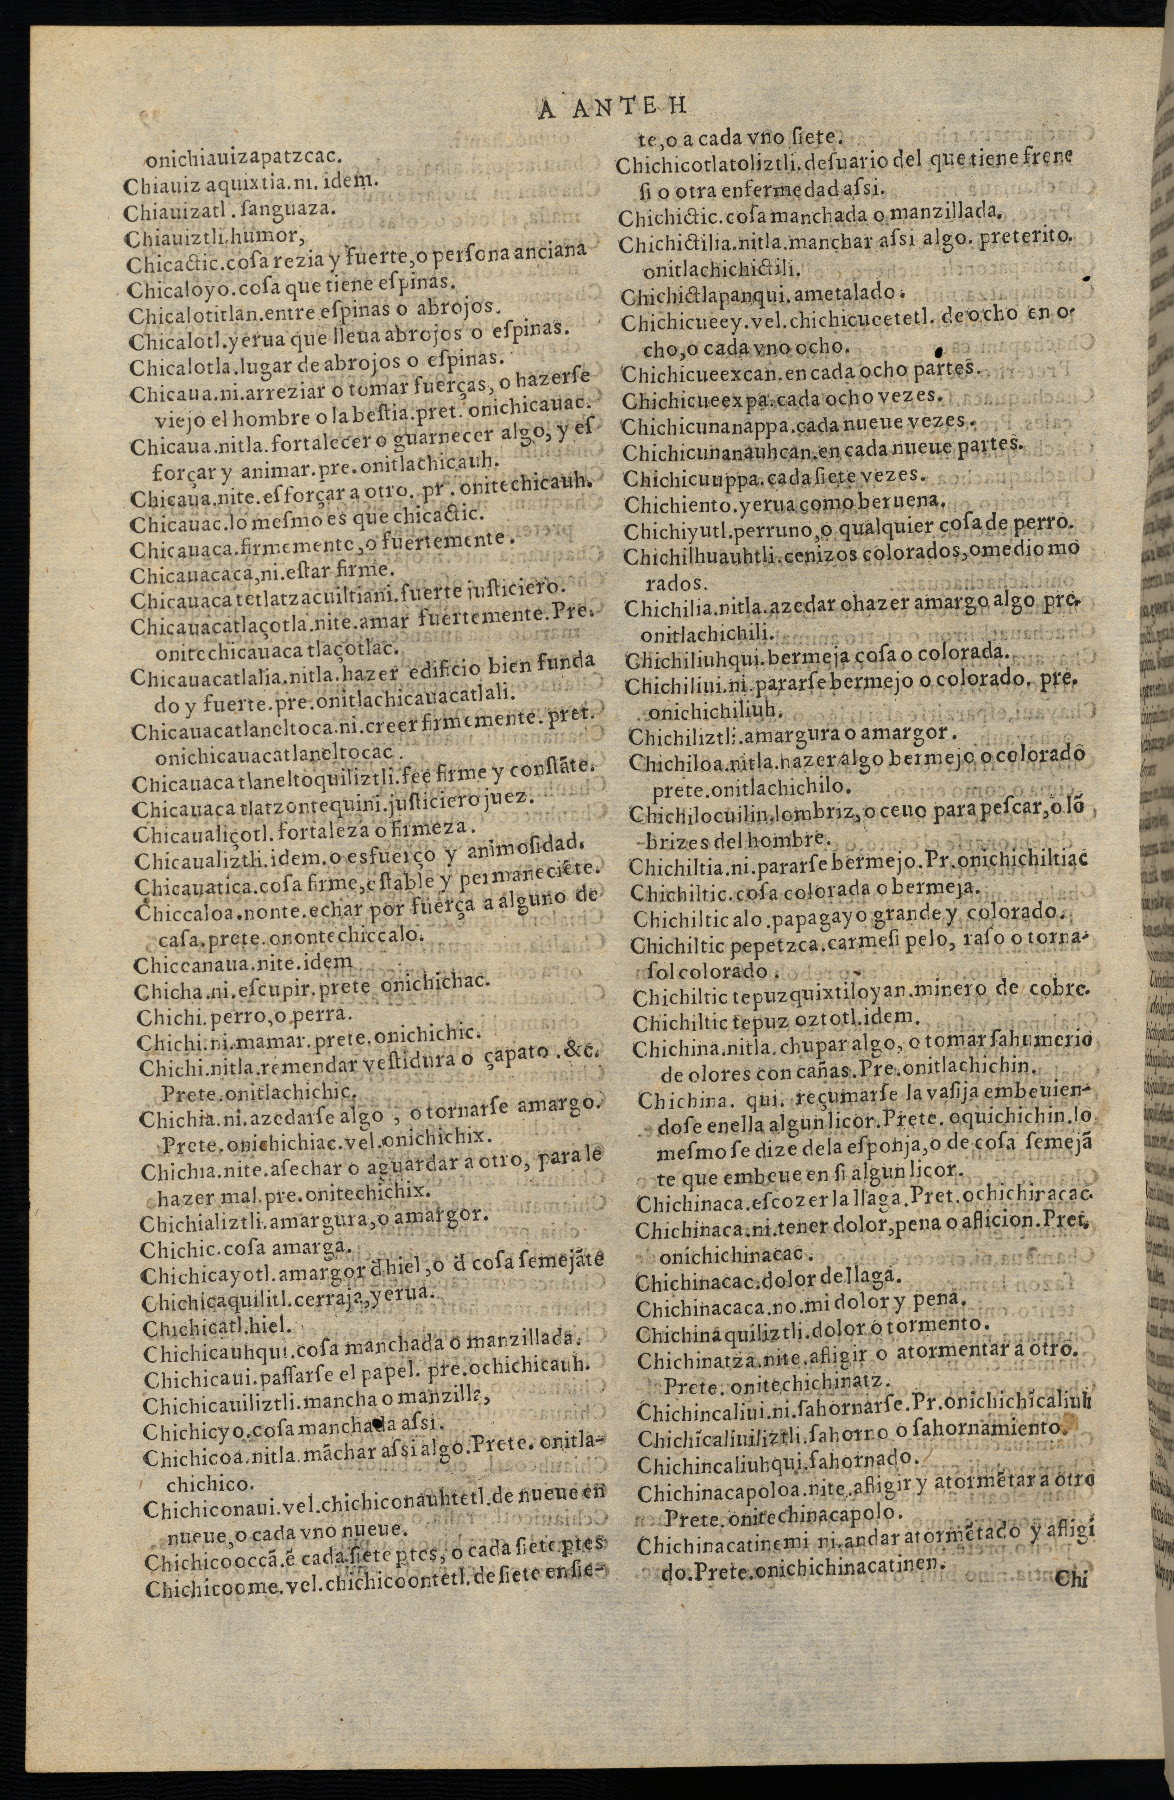 A ANTE H
onichiauizapatzcac.
Chiauiz aquixtia.ni. idem.
Chiauizatl. sanguaza.
Chiauiztli.humor,
Chicactic.cosa rezia y fuerte,o persona anciana
Chicaloyo.cosa que tiene espinas.
Chicalotitlan.entre espinas o abrojos.
Chicalotl.yerua que lleua abrojos o espinas.
Chicalotla.lugar de abrojos o espinas.
Chicaua.ni.arreziar o tomar fuerças, o hazerse
viejo el hombre o la bestia.pret. onichicauac.
Chicaua.nitla.fortalecer o guarnecer algo, y es
forçar y animar.pre.onitlachicauh.
Chicaua.nite.esforçar a otro. pr. onitechicauh.
Chicauac.lo mesmo es que chicactic.
Chicauaca.firmemente,o fuertemente.
Chicauacaca,ni.estar firme.
Chicauaca tetlatzacuiltiani.fuerte justiciero.
Chicauacatlaçotla.nite.amar fuertemente.Pre.
onitechicauaca tlaçotlac.
Chicauacatlalia.nitla.hazer edificio bien funda
do y fuerte.pre.onitlachicauacatlali.
Chicauacatlaneltoca.ni.creer firmemente.pret.
onichicauacatlaneltocac.
Chicauaca tlaneltoquiliztli.fee firme y constãte.
Chicauaca tlatzontequini.justiciero juez.
Chicaualiçotl.fortaleza o firmeza.
Chicaualiztli.idem.o esfuerço y animosidad.
Chicauatica.cosa firme,estable y permaneciẽte.
Chiccaloa.nonte.echar por fuerça a alguno de
casa.prete.onontechiccalo.
Chiccanaua.nite.idem
Chicha.ni.escupir.prete onichichac.
Chichi.perro,o perra.
Chichi.ni.mamar.prete.onichichic.
Chichi.nitla.remendar vestidura o çapato.&c.
Prete.onitlachichic.
Chichia.ni.azedarse algo, o tornarse amargo.
Prete.onichichiac.vel.onichichix.
Chichia.nite.asechar o aguardar a otro, para le
hazer mal.pre.onitechichix.
Chichializtli.amargura,o amargor.
Chichic.cosa amarga.
Chichicayotl.amargor d̃ hiel,o d̃ cosa semejãte
Chichicaquilitl.cerraja,yerua.
Chichicatl.hiel.
Chichicauhqui.cosa manchada o manzillada.
Chichicaui.passarse el papel. pre.ochichicauh.
Chichicauiliztli.mancha o manzilla,
Chichicyo.cosa manchada assi.
Chichicoa.nitla.mãchar assi algo.Prete.onitla-
chichico.
Chichiconaui.vel.chichiconauhtetl.de nueue en
nueue,o cada vno nueue.
Chichicooccã.ẽ cada siete ptes, o cada siete ptes
Chichicoome.vel.chichicoontetl.de siete en sie-
te,o a cada vno siete.
Chichicotlatoliztli.desuario del que tiene frene
si o otra enfermedad assi.
Chichictic.cosa manchada o manzillada.
Chichictilia.nitla.manchar assi algo. preterito.
onitlachichictili.
Chichictlapanqui.ametalado.
Chichicueey.vel.chichicueetetl. de ocho en o-
cho,o cada vno ocho.
Chichicueexcan.en cada ocho partes.
Chichicueexpa.cada ocho vezes.
Chichicunanappa.cada nueue vezes.
Chichicunanauhcan.en cada nueue partes.
Chichicuuppa.cada siete vezes.
Chichiento.yerua como beruena.
Chichiyutl.perruno,o qualquier cosa de perro.
Chichilhuauhtli.cenizos colorados,o medio mo
rados.
Chichilia.nitla.azedar o hazer amargo algo pre.
onitlachichili.
Chichiliuhqui.bermeja cosa o colorada.
Chichiliui.ni.pararse bermejo o colorado. pre.
onichichiliuh.
Chichiliztli.amargura o amargor.
Chichiloa.nitla.hazer algo bermejo o colorado
prete.onitlachichilo.
Chichilocuilin.lombriz,o ceuo para pescar,o lõ
brizes del hombre.
Chichiltia.ni.pararse bermejo.Pr.onichichiltiac
Chichiltic.cosa colorada o bermeja.
Chichiltic alo.papagayo grande y colorado.
Chichiltic pepetzca.carmesi pelo, raso o torna-
sol colorado.
Chichiltic tepuzquixtiloyan.minero de cobre.
Chichiltic tepuz oztotl.idem.
Chichina.nitla.chupar algo, o tomar sahumerio
de olores con cañas.Pre.onitlachichin.
Chichina. qui. reçumarse la vasija embeuien-
dose enella algun licor.Prete. oquichichin.lo
mesmo se dize dela esponja,o de cosa semejã
te que embeue en si algun licor.
Chichinaca.escozer la llaga.Pret.ochichinacac.
Chichinaca.ni.tener dolor,pena o aflicion.Pret.
onichichinacac.
Chichinacac.dolor de llaga.
Chichinacaca.no.mi dolor y pena.
Chichinaquiliztli.dolor o tormento.
Chichinatza.nite.afligir o atormentar a otro.
Prete. onitechichinatz.
Chichincaliui.ni.sahornarse.Pr.onichichĩcaliuh
Chichĩcaliuiliztli.sahorno o sahornamiento.
Chichincaliuhqui.sahornado.
Chichinacapoloa.nite.afligir y atormẽtar a otro
Prete.onitechinacapolo.
Chichinacatinemi ni.andar atormẽtado y afligi
do.Prete.onichichinacatinen.
Chi